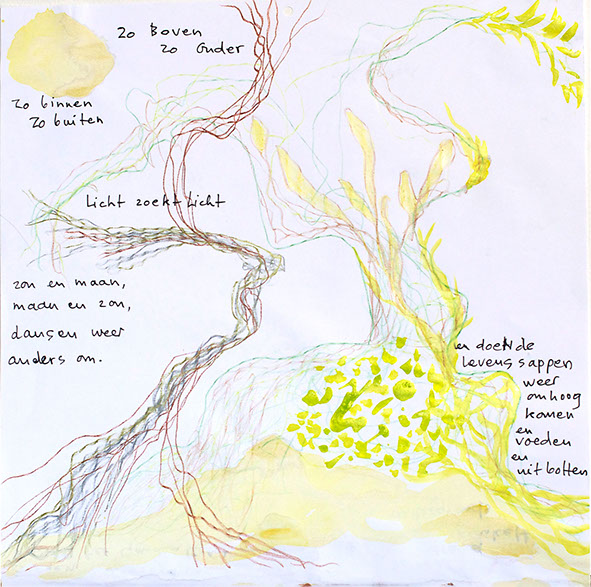 Zo Boven
Zo Onder
Zo binnen
Zo buiten
Licht zoekt Licht
zon en maan,
maan en zon,
dansen weer
anders om.
en doet de
levenssappen
weer
omhoog
komen
en
voeden
en
uit botten